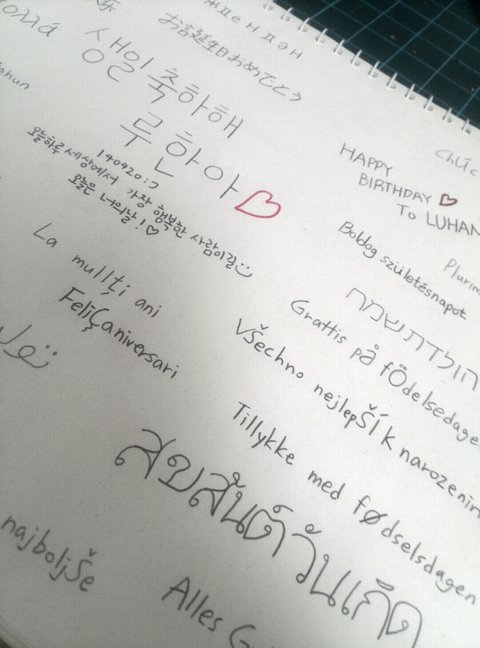 πολλά
お誕生日おめでとう
생일축하해
루한아♡
140420:>
오늘하루 세상에서 가장 행복한 사람이길
오늘은 너의날!♡
HAPPY
BIRTHDAY ♡
To LUHAN
Chúc
Boldog születésnapot
Plurim
הולדת שמח
Grattis på födelsedagen
La mullţi ani
Feliçaniversari
Všechno nejlepší k narozenin
Tillykke med fødselsdagen
สุขสันต์วันเกิด
najboljše
Alles G